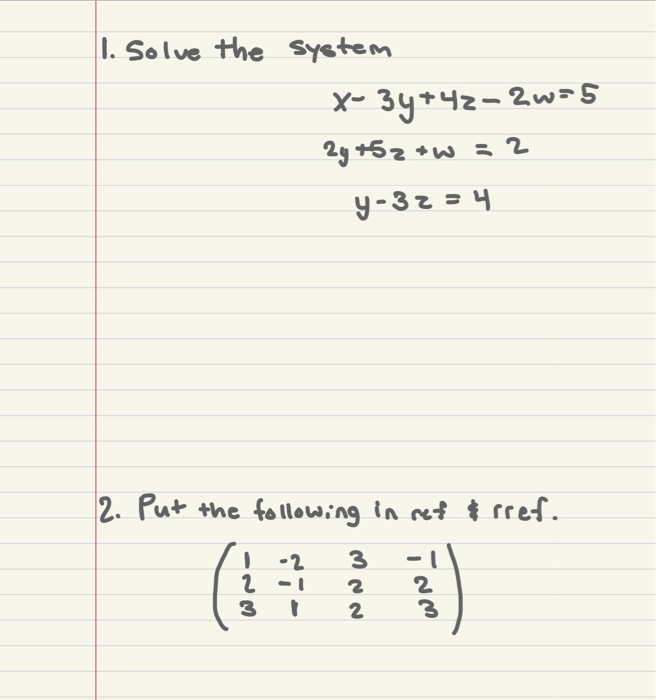 1. Solve the system
x - 3y + 4z - 2w = 5
2y + 5z + w = 2
y - 3z = 4
2. Put the following in ref & rref.
1 -2 3 -1
2 -1 2 2
3 1 2 3